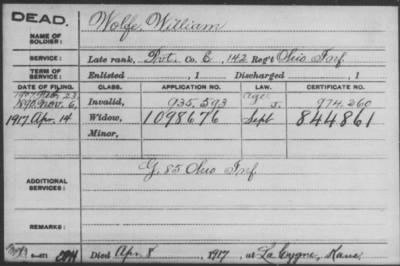 DEAD.
Wolfe, William
NAME OF
SOLDIER:
SERVICE: Late rank, Pvt. Co. E, 142 Reg't Ohio Inf.
TERM OF
SERVICE: Enlisted , 1 Discharged , 1
DATE OF FILING. CLASS. APPLICATION NO. LAW. CERTIFICATE NO.
1890. Nov. 6, Invalid, 935,593 J. 974,260
1917 Apr. 14 Widow, 1098676 Sept 844861
Minor,
G, 85 Ohio Inf.
ADDITIONAL
SERVICES:
REMARKS:
Died Apr. 8, 1917, at La Cygne, Kans.